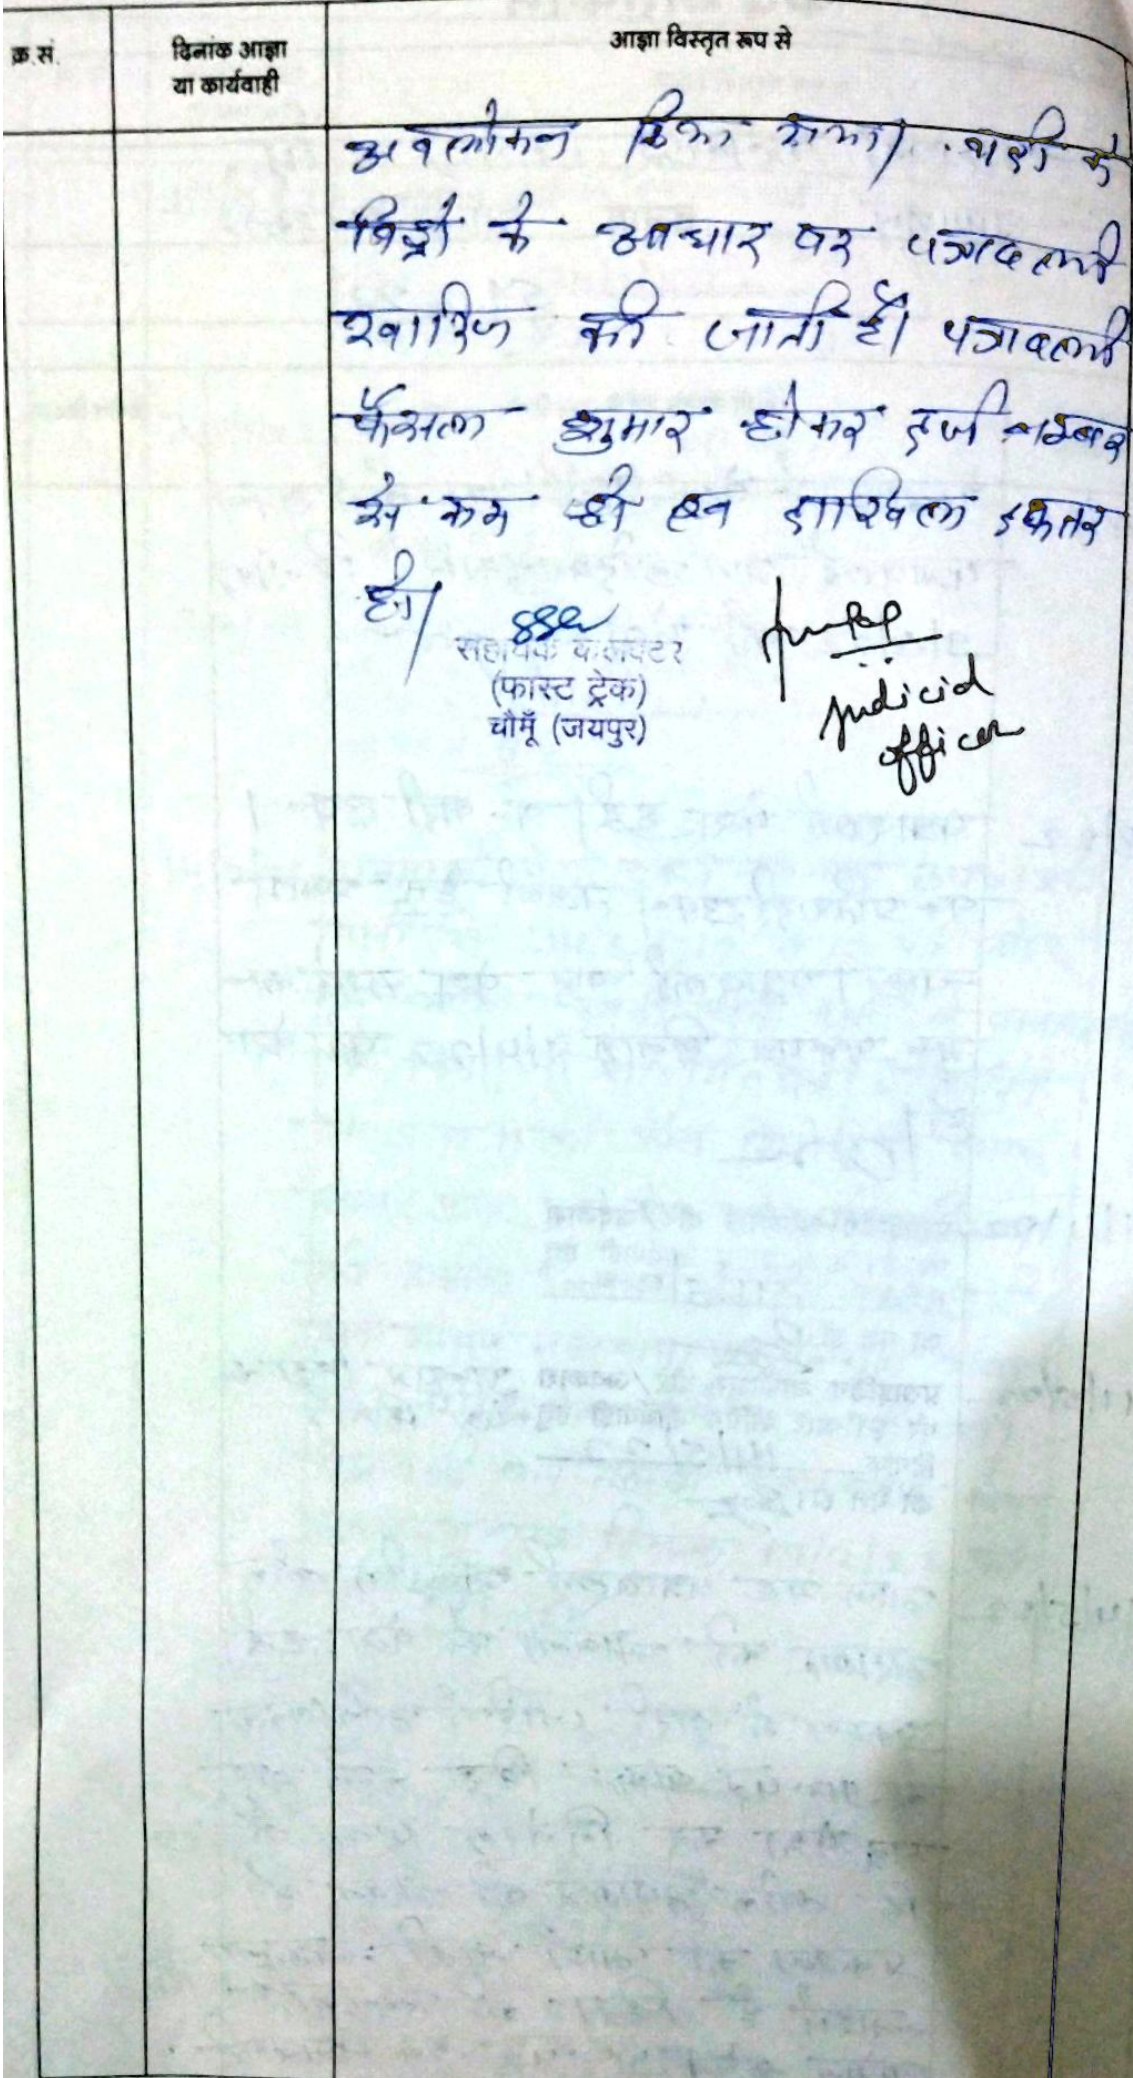 क्र.सं.
दिनांक आज्ञा
या कार्यवाही
आज्ञा विस्तृत रूप से
अवलोकन किया गया। वादी के
विड्रो के आधार पर पत्रावली
खारिज की जाती है। पत्रावली
फैसल शुमार होकर दर्ज नम्बर
से कम हो दाखिल दफ्तर
हो।
सहायक कलक्टर
(फास्ट ट्रेक)
चौमूँ (जयपुर)
judicial
officer